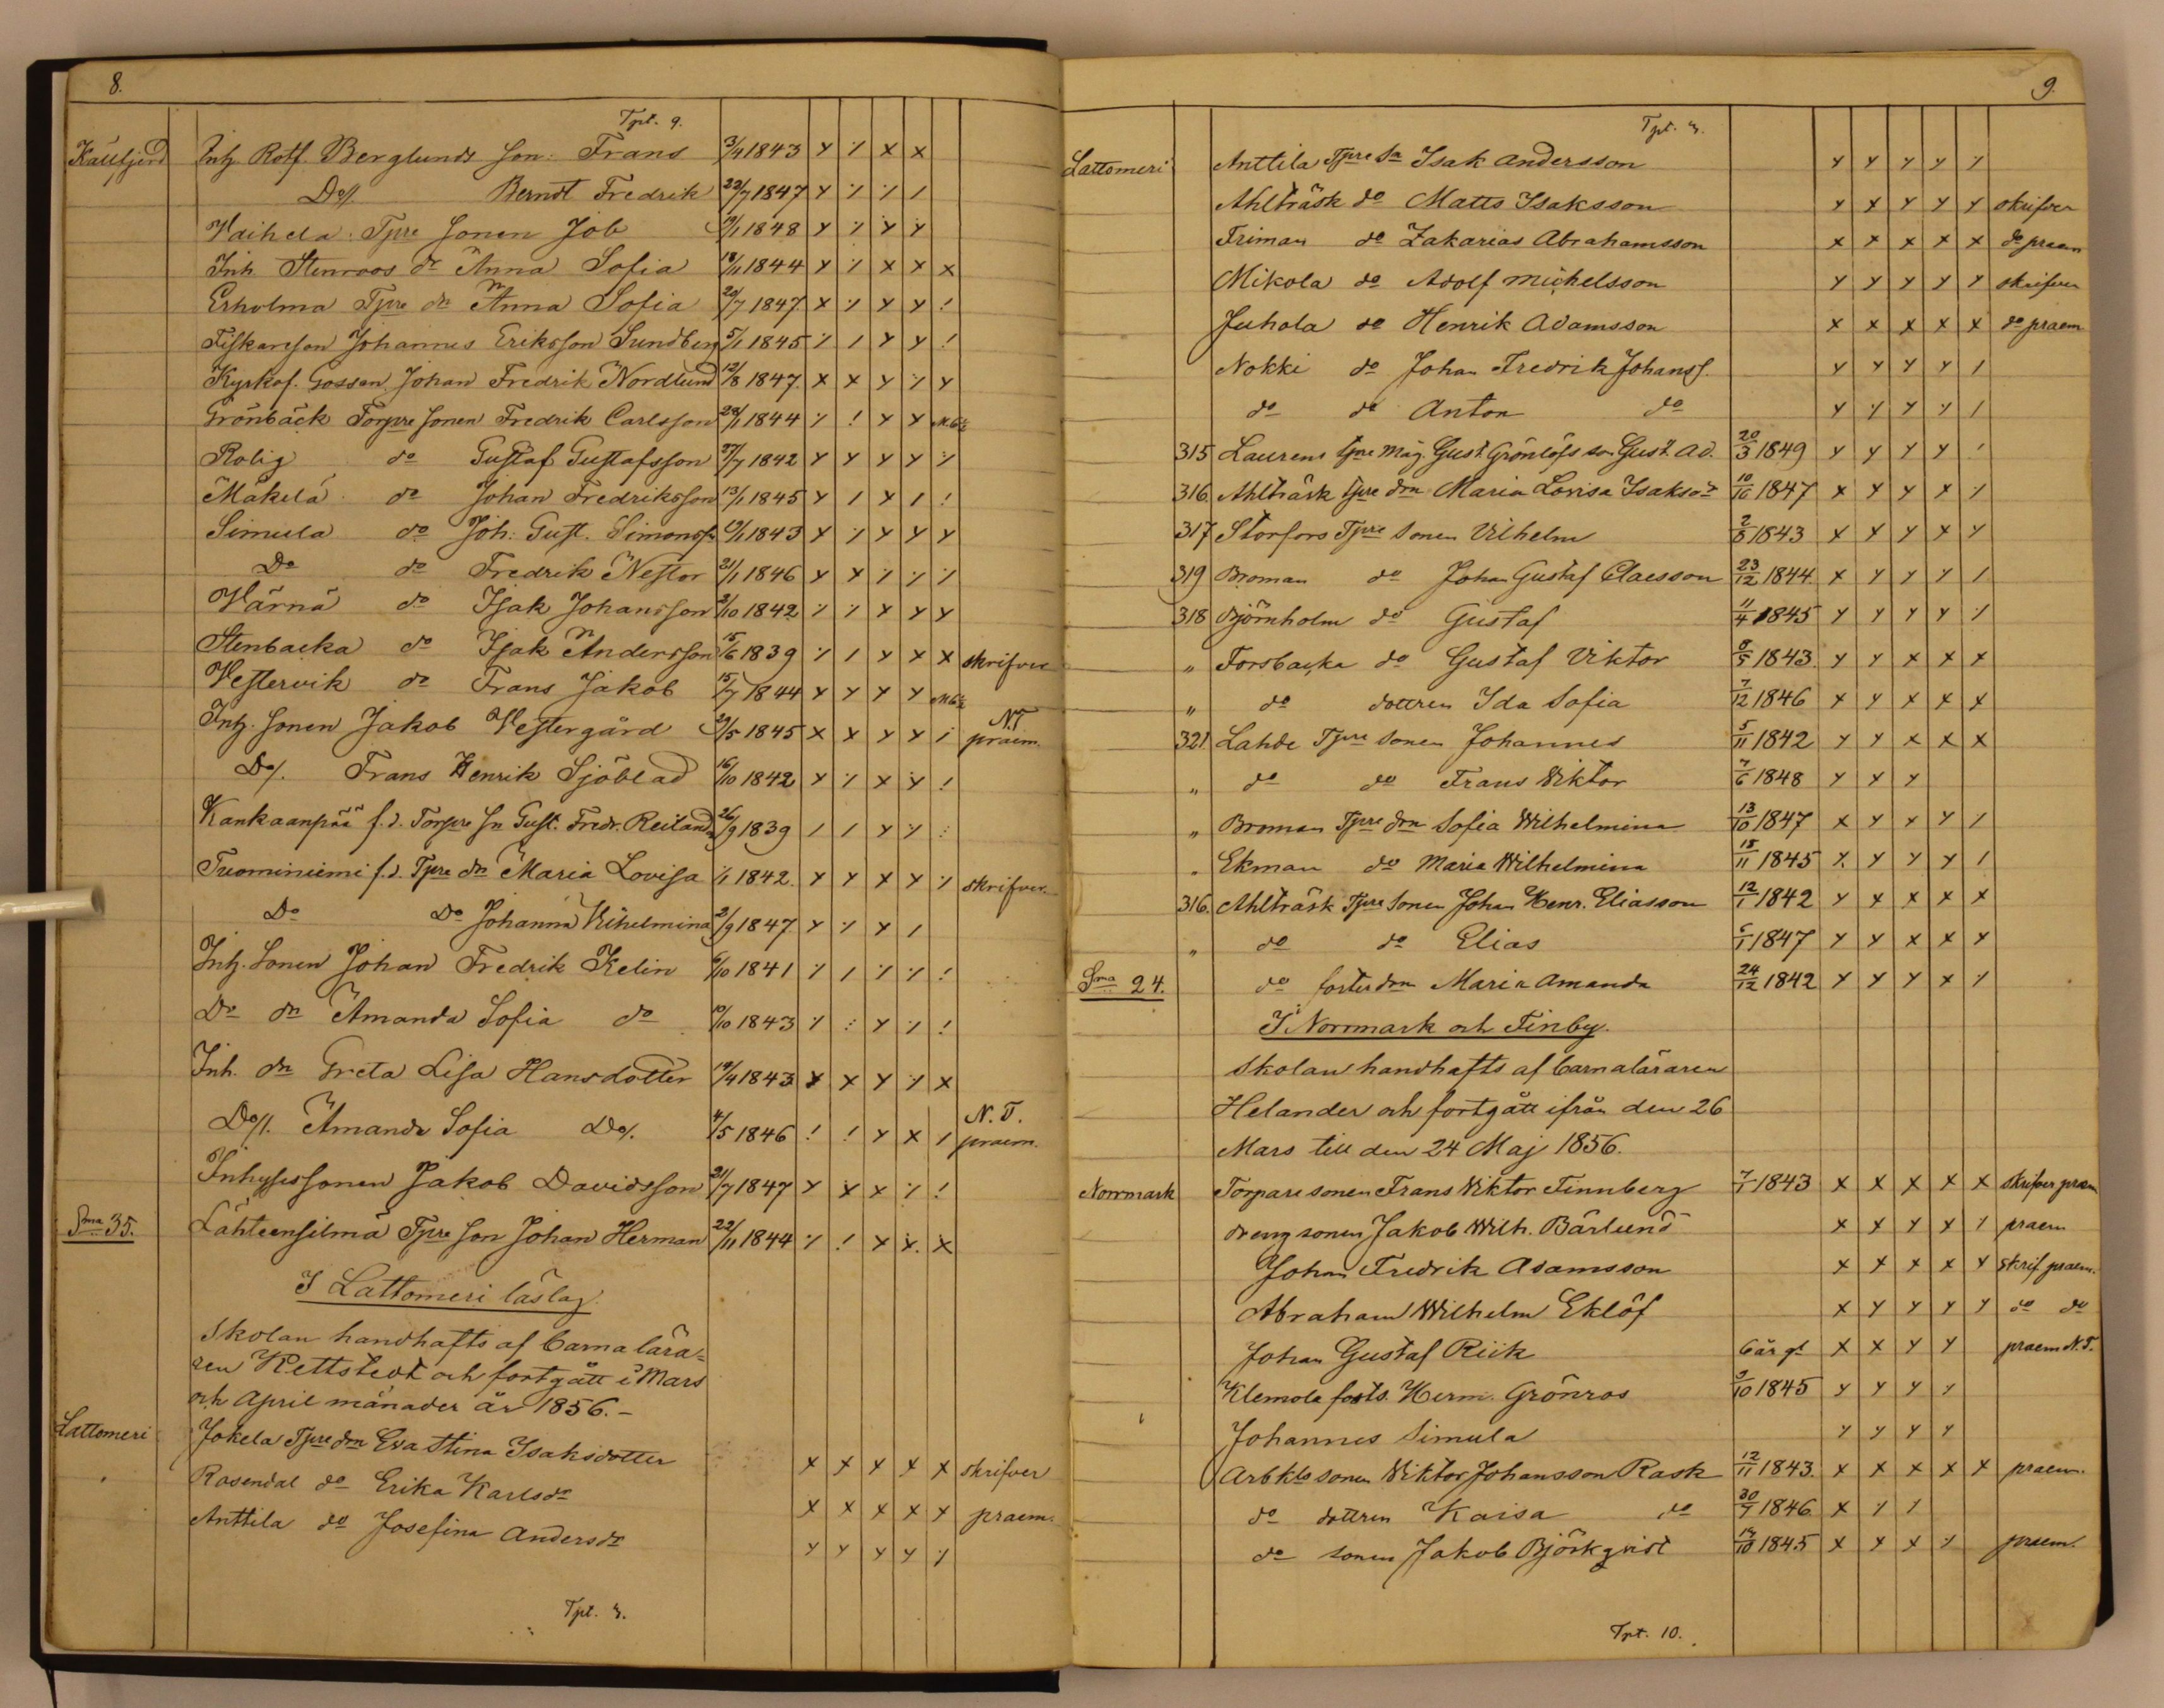 8.
Tpt. 9.
Inh. Rotf. Berglunds son: Frans 3/4 1843 x ⁒ x x
Do/. Berndt Fredrik 22/7 1847 x ⁒ ⁒ /
Vaihela Tpre sonen Job 1848 x ⁒ x x
Inh. Stenroos dr Anna Sofia 18/11 1844 x ⁒ x x x
Erholma Tpre dn Anna Sofia 20/7 1847 x ⁒ x x !
Fiskareson Johannes Eriksson Sundberg 5/1 1845 ⁒ / x x !
Kyrkof. Gossen Johan Fredrik Nordlund 12/8 1847 x x x ⁒ x
Grönbäck Torpre sonen Fredrik Carlsson 28/1 1844 ⁒ ! x x
Rolig do Gustaf Gustafsson 27/7 1842 x x x x ⁒
Mäkelä do Johan Fredriksson 13/1 1845 x / x / !
Simula do Joh. Gust. Simonss. 1843 x ⁒ x x x
Do do Fredrik Nestor 21/1 1846 x x ⁒ ⁒ ⁒
Värnä do Isak Johansson 2/10 1842 ⁒ ⁒ x x x
Stenbacka do Isak Andersson 15/6 1839 ⁒ / x x x skrifver
Vestervik do Frans Jakob 15/7 1844 x x x x
Inh. sonen Jakob Vestergård 29/5 1845 x x x x / N.T. praem.
Do/. Frans Henrik Sjöblad 16/10 1842 x ⁒ x x !
Kankaanpää f.d. Torpre sn Gust. Fredr. Reiland 26/9 1839 / / x ⁒ :
Tuominiemi f.d. Tpre dn Maria Lovisa 1842. x x x x ⁒ skrifver
Do Do Johanna Vilhelmina 2/9 1847 x ⁒ x /
Inh. Sonen Johan Fredrik Kelin 6/10 1841 ⁒ / ⁒ ⁒ !
Do dn Amanda Sofia do 10/10 1843 ⁒ : x ⁒ !
Inh. dn Greta Lisa Hansdotter 19/4 1843 x x x ⁒ x
Do/. Amanda Sofia Do/. 4/5 1846 ! ! x x / N.T. praem.
Inhysessonen Jakob Davidsson 21/7 1847 x x x ⁒ !
Sma 35. Lähteensilmä Tpre son Johan Herman 22/11 1844 ⁒ ! x x. x
I Lattomeri läslag.
Skolan handhafts af barnalära=
ren Kettstedt och fortgått i Mars
och April månader år 1856.-
Lattomeri Jokela Tpre drn Eva Stina Isaksdotter x x x x x skrifver
Rosendal do Erika Karlsdr x x x x x praem.
Anttila do Josefina Andersdr x x x x ⁒
Tpt. 3.
9.
Tpt. 3.
Lattomeri Anttila Tpre Sn Isak Andersson x x x x ⁒
Ahlträsk do Matts Isaksson x x x x x skrifver
Friman do Zakarias Abrahamsson x x x x x do praem
Mikola do Adolf Michelsson x x x x x skrifver
Juhola do Henrik Adamsson x x x x x do praem
Nokki do Johan Fredrik Johanss. x x x x /
do do Anton do x x x x /
315 Laurens tpre måg. Gust. Grönlöfs son Gust. Ad. 20/3 1849 x x x x /
316. Ahlträsk tpre drn Maria Lovisa Isaksdr 10/10 1847 x x x x ⁒
317 Storfors Tpre sonen Vilhelm 2/8 1843 x x x x x
319 Broman do Johan Gustaf Claesson 23/12 1844 x x x x /
318 Björnholm do Gustaf 11/4 1845 x x x x ⁒
" Forsbacka do Gustaf Viktor 8/5 1843 x x x x x
" do dottren Ida Sofia 7/12 1846 x x x x x
321. Lahde Tpre sonen Johannes 5/11 1842 x x x x x
" do do Frans Viktor 7/6 1848 x x x
" Broman Tpre drn Sofia Wilhelmina 13/10 1847 x x x x /
" Ekman do Maria Wilhelmina 15/11 1845 x x x x /
316. Ahlträsk Tpre sonen Johan Henr. Eliasson 12/1 1842 x x x x x
" do do Elias 6/1 1847 x x x x x
Sma 24. do foster drn Maria Amanda 24/12 1842 x x x x ⁒
I Norrmark och Finby.
Skolan handhafts af barnaläraren
Helander och fortgått ifrån den 26
Mars till den 24 Maj 1856.
Norrmark Torparesonen Frans Viktor Finnberg 7/1 1843 x x x x x skrifver praem
drengsonen Jakob Wilh. Bärlund x x x x ⁒ praem
Johan Fredrik Adamsson x x x x x skrif. praem.
Abraham Wilhelm Eklöf x x x x x do do
Johan Gustaf Riik 6 år gl x x x x praem N.T.
Klemola fosts. Herm. Grönros 9/10 1845 x x x x
Johannes Simula x x x x
Arbkls sonen Viktor Johansson Rask 12/11 1843. x x x x x praem.
do dottren Kaisa do 30/7 1846 x ⁒ ⁒
do sonen Jakob Björkqvist 14/10 1845 x x x ⁒ praem.
Tpt. 10.